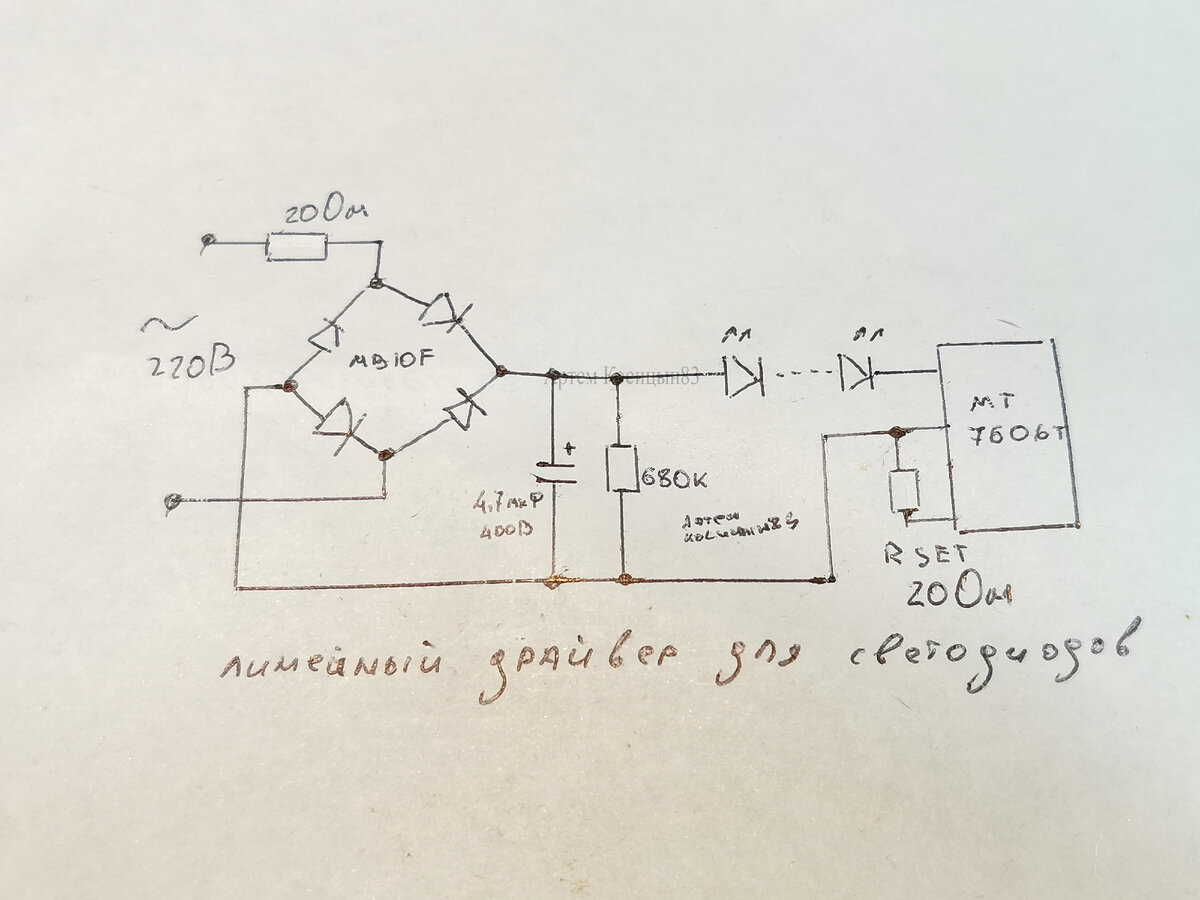 20 Ом
~
220В
MB10F
Артем Косицын83
+
4,7мкФ
400В
680К
Артем
косицын83
MT
7606T
R SET
20 Ом
линейный драйвер для светодиодов